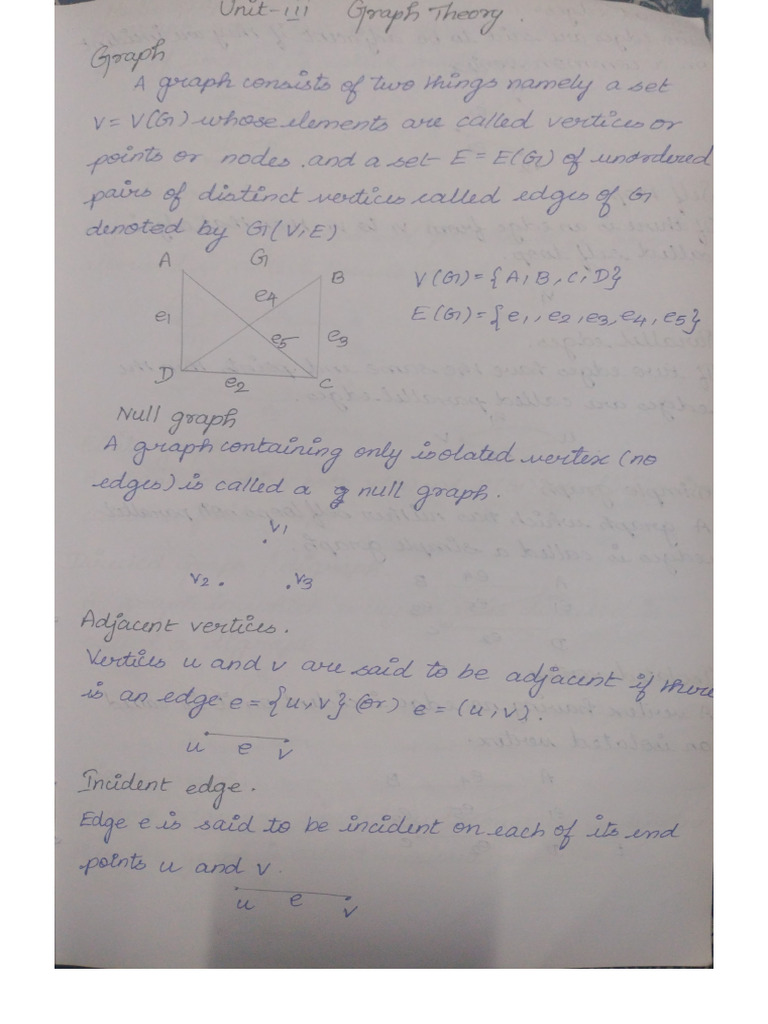 Unit-III Graph Theory.
Graph
A graph consists of two things namely a set
V = V(G) whose elements are called vertices or
points or nodes. and a set E = E(G) of unordered
pairs of distinct vertices called edges of G
denoted by G(V, E)
A G B
V(G) = {A, B, C, D}
e4
E(G) = {e1, e2, e3, e4, e5}
e1 e5 e3
D e2 C
Null graph
A graph containing only isolated vertex (no
edges) is called a null graph.
V1
V2 . . V3
Adjacent vertices.
Vertices u and v are said to be adjacent if there
is an edge e = {u, v} (or) e = (u, v).
u e v
Incident edge.
Edge e is said to be incident on each of its end
points u and v.
u e v